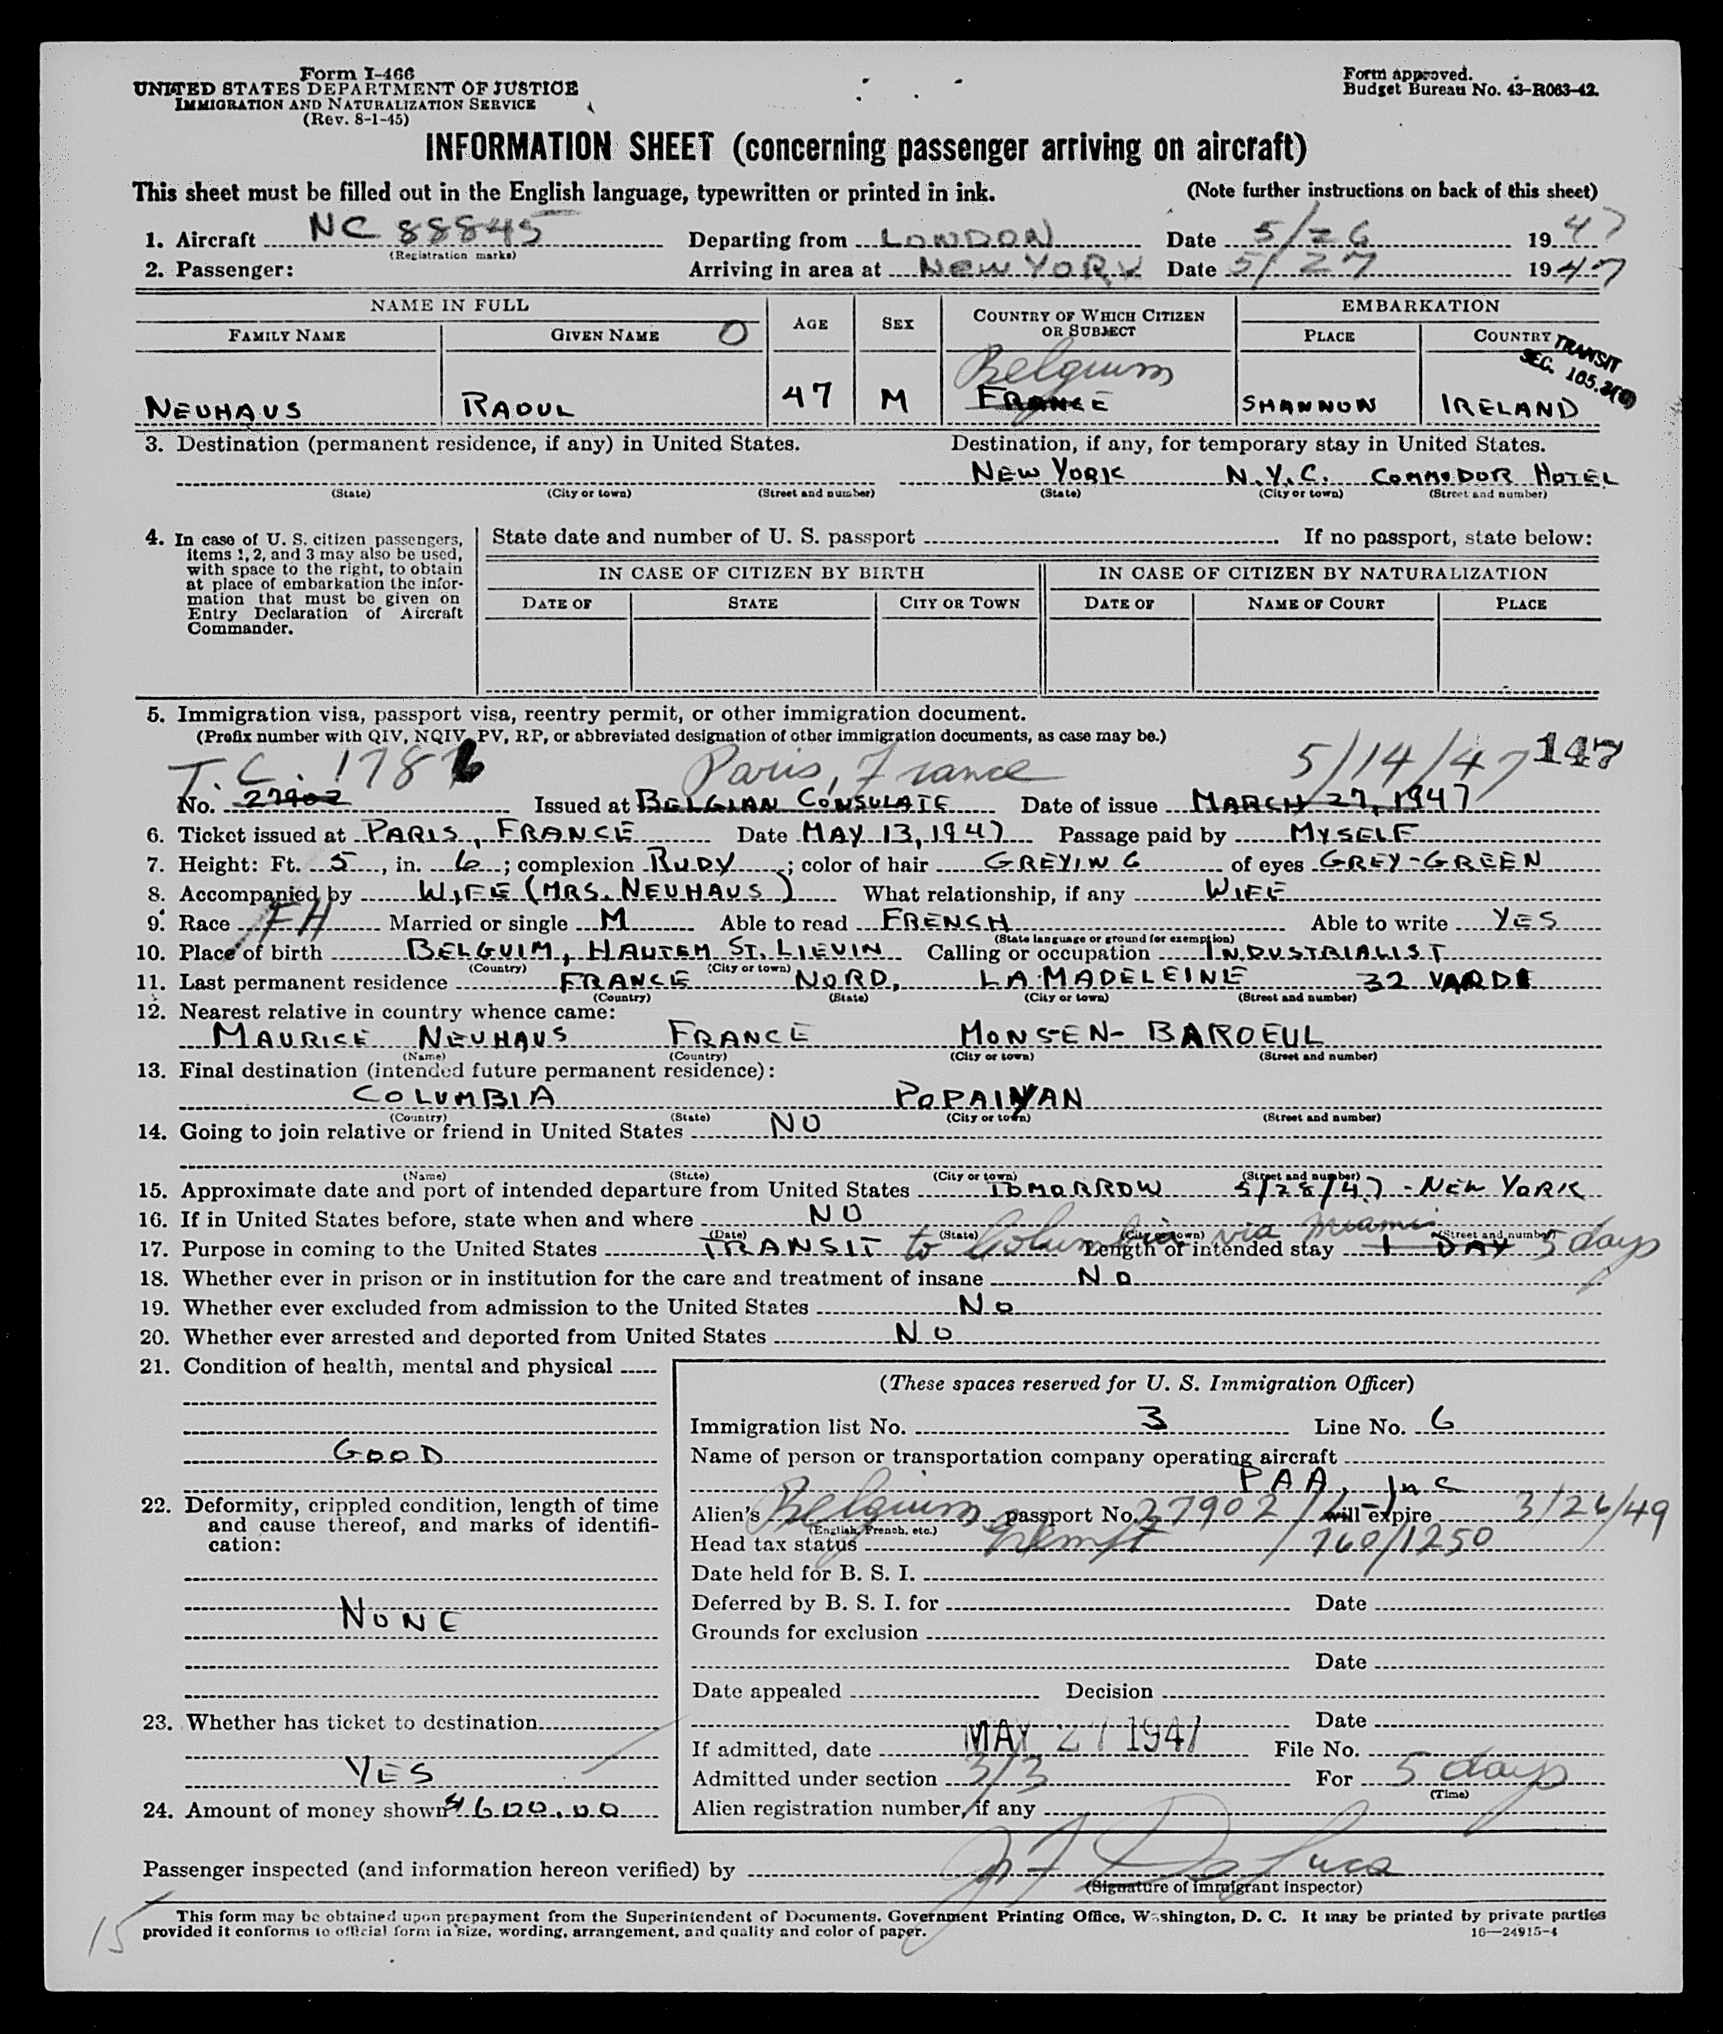 Form I-466
UNITED STATES DEPARTMENT OF JUSTICE
IMMIGRATION AND NATURALIZATION SERVICE
(Rev. 8-1-45)
Form approved.
Budget Bureau No. 43-R063-42.
INFORMATION SHEET (concerning passenger arriving on aircraft)
This sheet must be filled out in the English language, typewritten or printed in ink. (Note further instructions on back of this sheet)
1. Aircraft NC 88845 Departing from LONDON Date 5/26 1947
(Registration marks)
2. Passenger: Arriving in area at NEW YORK Date 5/27 1947
NAME IN FULL AGE SEX COUNTRY OF WHICH CITIZEN OR SUBJECT EMBARKATION
FAMILY NAME GIVEN NAME O PLACE COUNTRY
TRANSIT
SEC. 105.3(
Belgium
NEUHAUS RAOUL 47 M FRANCE SHANNON IRELAND
3. Destination (permanent residence, if any) in United States. Destination, if any, for temporary stay in United States.
NEW YORK N.Y.C. COMMODOR HOTEL
(State) (City or town) (Street and number) (State) (City or town) (Street and number)
4. In case of U. S. citizen passengers, items 1, 2, and 3 may also be used, with space to the right, to obtain at place of embarkation the information that must be given on Entry Declaration of Aircraft Commander.
State date and number of U. S. passport If no passport, state below:
IN CASE OF CITIZEN BY BIRTH IN CASE OF CITIZEN BY NATURALIZATION
DATE OF STATE CITY OR TOWN DATE OF NAME OF COURT PLACE
5. Immigration visa, passport visa, reentry permit, or other immigration document.
(Prefix number with QIV, NQIV, PV, RP, or abbreviated designation of other immigration documents, as case may be.)
T.C. 1786 Paris, France 5/14/47 147
No. 27902 Issued at BELGIAN CONSULATE Date of issue MARCH 27, 1947
6. Ticket issued at PARIS, FRANCE Date MAY 13, 1947 Passage paid by MYSELF
7. Height: Ft. 5, in. 6; complexion RUDY; color of hair GREYING of eyes GREY-GREEN
8. Accompanied by WIFE (MRS. NEUHAUS) What relationship, if any WIFE
9. Race FH Married or single M Able to read FRENCH Able to write YES
(State language or ground for exemption)
10. Place of birth BELGUIM, HAUTEM ST. LIEVIN Calling or occupation INDUSTRIALIST
(Country) (City or town)
11. Last permanent residence FRANCE NORD, LA MADELEINE 32 VARDE
(Country) (State) (City or town) (Street and number)
12. Nearest relative in country whence came:
MAURICE NEUHAUS FRANCE MONS-EN-BAROEUL
(Name) (Country) (City or town) (Street and number)
13. Final destination (intended future permanent residence):
COLUMBIA POPAIYAN
(Country) (State) (City or town) (Street and number)
14. Going to join relative or friend in United States NO
(Name) (State) (City or town) (Street and number)
15. Approximate date and port of intended departure from United States TOMORROW 5/28/47 - NEW YORK
16. If in United States before, state when and where NO
(Date) (State) (City or town) (Street and number)
17. Purpose in coming to the United States TRANSIT to Columbia via Miami Length of intended stay 1 DAY 5 days
18. Whether ever in prison or in institution for the care and treatment of insane NO
19. Whether ever excluded from admission to the United States NO
20. Whether ever arrested and deported from United States NO
21. Condition of health, mental and physical
GOOD
22. Deformity, crippled condition, length of time and cause thereof, and marks of identification:
NONE
23. Whether has ticket to destination
YES
24. Amount of money shown $600.00
(These spaces reserved for U. S. Immigration Officer)
Immigration list No. 3 Line No. 6
Name of person or transportation company operating aircraft
PAA, Inc
Alien's Belgium passport No. 27902 will expire 3/26/49
(English, French, etc.)
Head tax status Exempt 760/1250
Date held for B. S. I.
Deferred by B. S. I. for Date
Grounds for exclusion
Date
Date appealed Decision
Date
If admitted, date MAY 27 1947 File No.
Admitted under section 3/3 For 5 days
(Time)
Alien registration number, if any
Passenger inspected (and information hereon verified) by
(Signature of immigrant inspector)
This form may be obtained upon prepayment from the Superintendent of Documents, Government Printing Office, Washington, D. C. It may be printed by private parties
provided it conforms to official form in size, wording, arrangement, and quality and color of paper. 16—24915-4
15